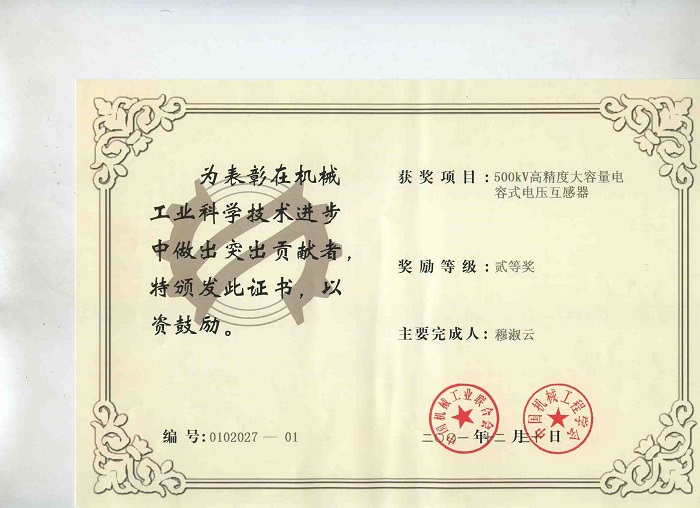 为表彰在机械
工业科学技术进步
中做出突出贡献者，
特颁发此证书，以
资鼓励。
编号:0102027 — 01
获奖项目:500kV高精度大容量电
容式电压互感器
奖励等级:贰等奖
主要完成人:穆淑云
中国机械工业联合会
中国机械工程学会
二〇〇一年十二月二十日